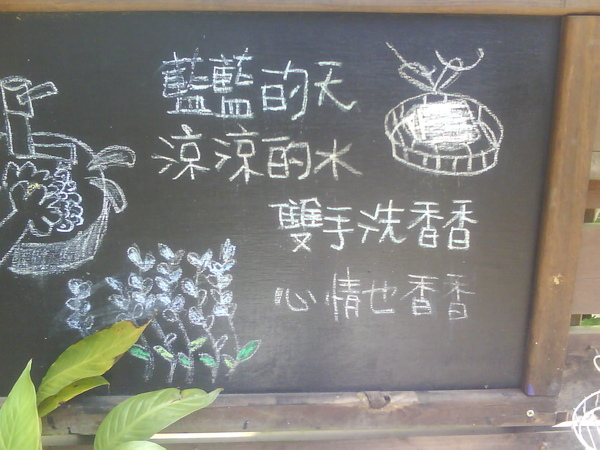 藍藍的天
涼涼的水
雙手洗香香
心情也香香